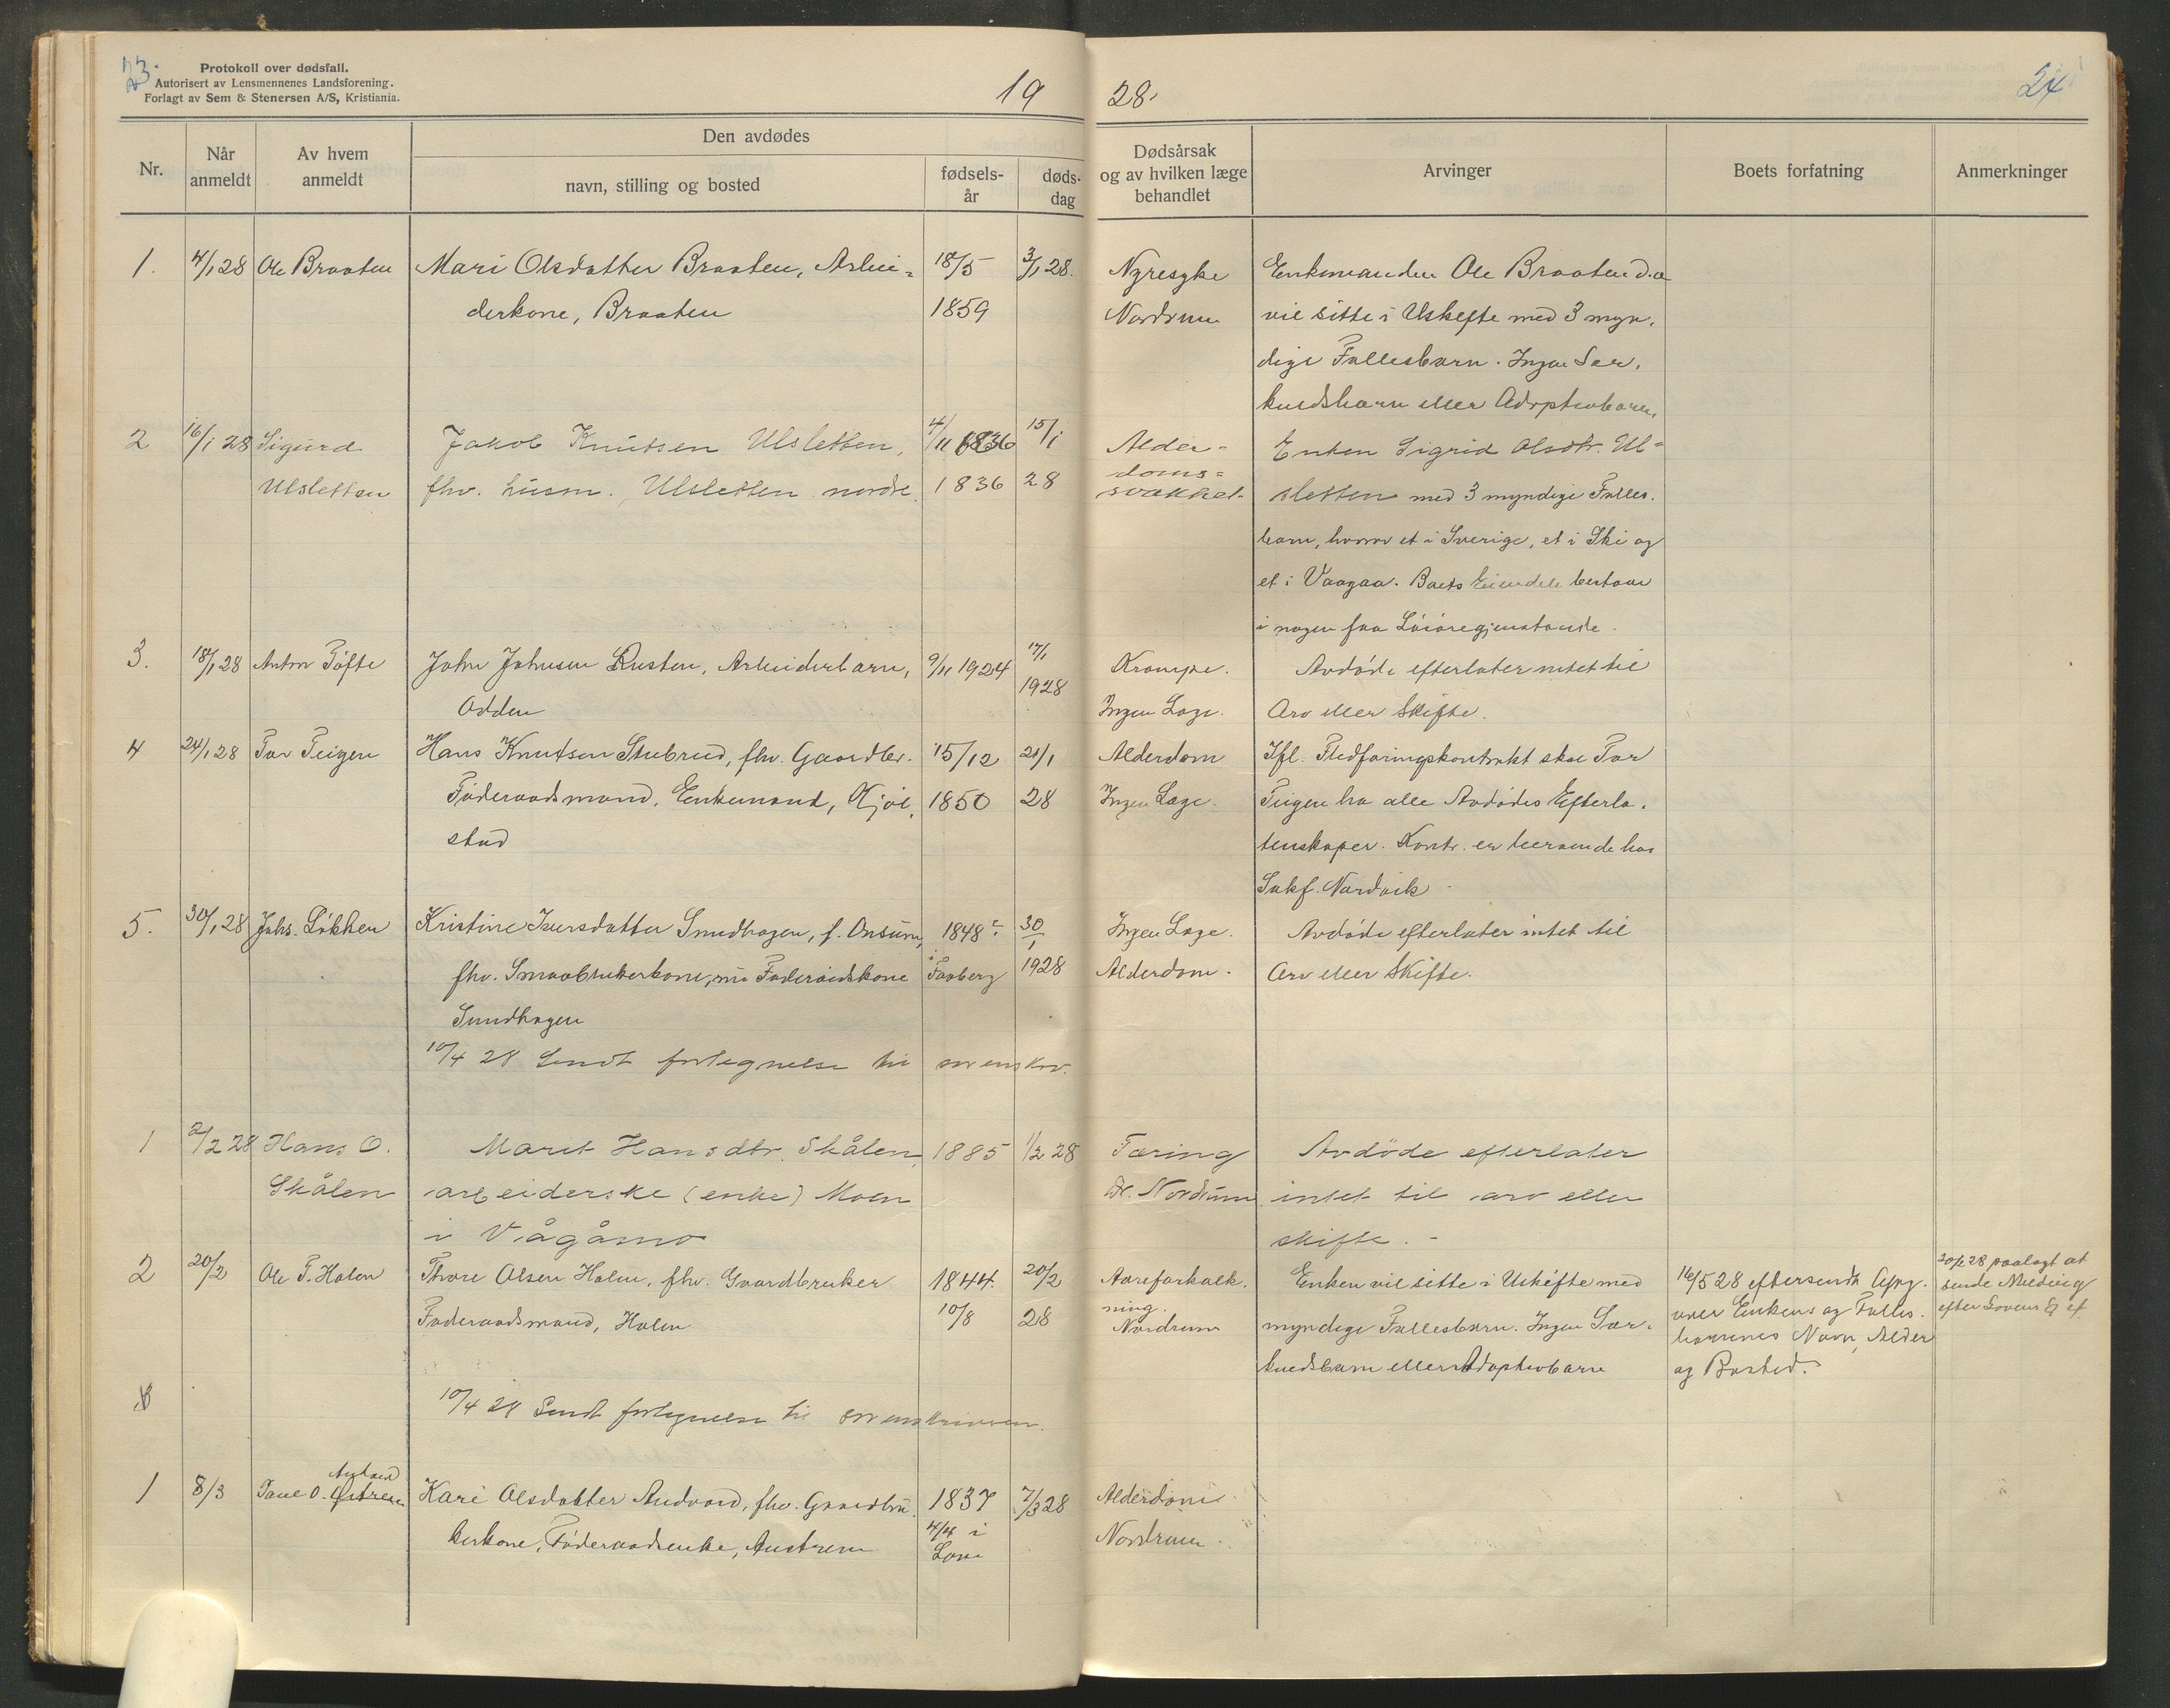 23.
Protokoll over dødsfall.
Autorisert av Lensmennenes Landsforening.
Forlagt av Sem & Stenersen A/S, Kristiania.
19 28.
24
Nr.
Når anmeldt
Av hvem anmeldt
Den avdødes
navn, stilling og bosted
fødsels-år
døds-dag
Dødsårsak
og av hvilken læge
behandlet
Arvinger
Boets forfatning
Anmerkninger
1. 4/1 28 Ole Braaten Mari Olsdatter Braaten, Arbei= 18/5 3/1 28. Nyresyke Enkemanden Ole Braaten d.æ
derkone, Braaten 1859 Nordrum vil sitte i Uskifte med 3 myn.
dige Fællesbarn. Ingen Sær.
kuldsbarn eller Adoptivbarn.
2 16/1 28 Sigurd Jakob Knutsen Ulsletten, 4/11 1836 15/1 Alder= Enken Sigrid Olsdtr. Ul=
Ulsletten fhv. husm. Ulsletten nordre 1836 28 doms= sletten med 3 myndige Fælles.
svakhet.
barn, hvorav et i Sverige, et i Ski og
et i Vaagaa. Boets Eiendele bestaar
i nogen faa Løsøregjenstande.
3. 18/1 28 Anton Tøfte John Johnsen Rusten, Arbeiderbarn, 9/11 1924 17/1 Krampe. Avdøde efterlater intet til
1928
Odden Ingen Læge. Arv eller Skifte.
4 24/1 28 Tor Teigen Hans Knutsen Stubrud, fhv. Gaardbr. 15/12 21/1 Alderdom Ifl. Fledføringskontrakt skal Tor
Føderaadsmand, Enkemand, Kjøl. 1850 28 Ingen Læge. Teigen ha alle Avdødes Efterla.
stad tenskaper. Kontr. er beroende hos
Sakf. Nordvik
5. 30/1 28 Johs. Løkken Kristine Iversdatter Smedhagen, f. Onsum, 1848 30/1 Ingen Læge. Avdøde efterlater intet til
fhv. Smaabrukerkone, nu Føderaadskone i Faaberg 1928 Alderdom. Arv eller Skifte.
Smedhagen
10/4 28 Sendt fortegnelse til sorenskr.
1 2/2 28 Hans O. Marit Hansdtr. Skålen, 1885 1/2 28 Tæring Avdøde efterlater
Skålen arbeiderske (enke) Moen Dr. Nordrum intet til arv eller
i Vågåmo skifte. -
2 20/2 Ole T. Holen Thore Olsen Holen, fhv. Gaardbruker 1844. 20/2 Aareforkalk. Enken vil sitte i Uskifte med 16/5 28 eftersendt Opg. 20/2 28 paalagt at
sende Melding
Føderaadsmand, Holen 10/8 28 ning. myndige Fællesbarn. Ingen Sær. over Enkens og Fælles. efter Lovens §
Nordrum kuldsbarn eller Adoptivbarn barnenes Navn, Alder
og Bosted.
10/4 28 Sendt fortegnelse til sorenskriveren.
Andvord
1 8/3 Paul O. Kari Olsdatter Andvord, fhv. Gaardbru. 1837 7/3 28 Alderdom
kerkone, Føderaadsenke, Austrem 4/4 i Nordrum.
Lom